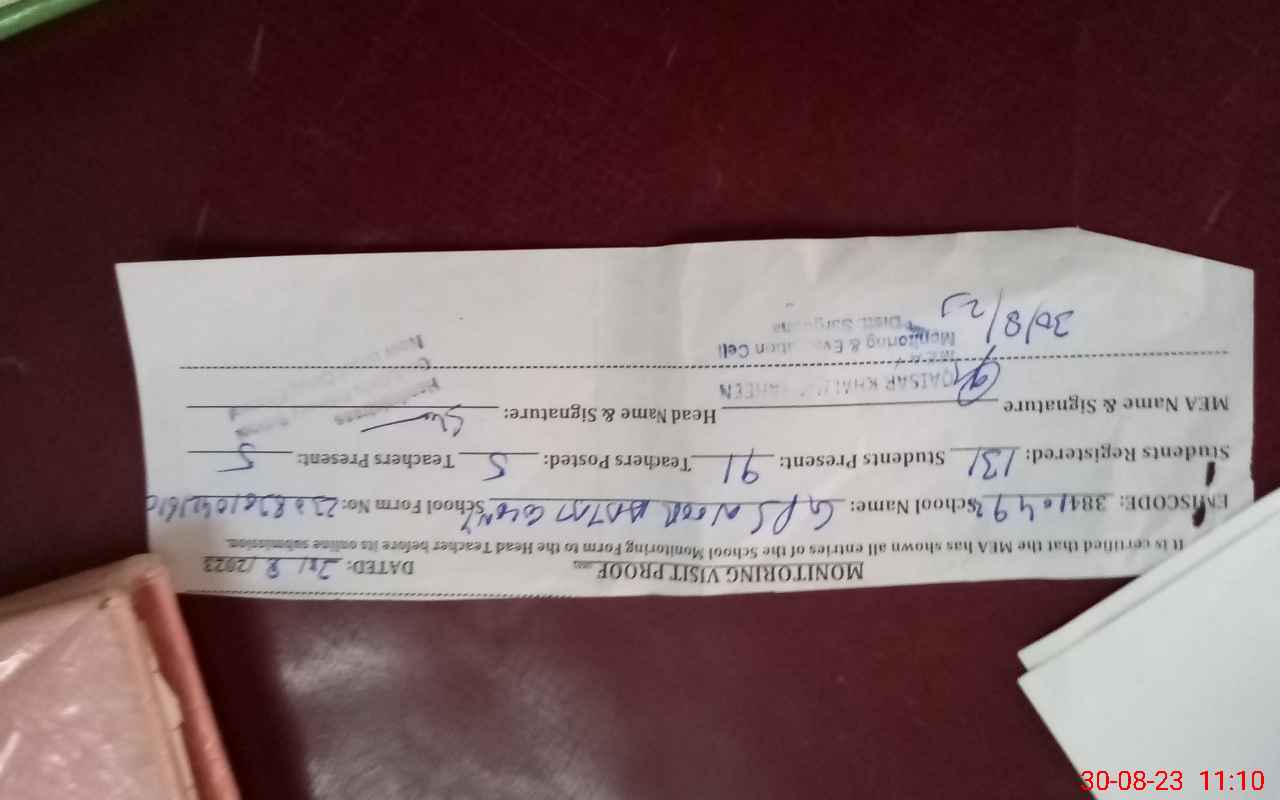 MONITORING VISIT PROOF DATED: 30/ 8 /2023
It is certified that the MEA has shown all entries of the School Monitoring Form to the Head Teacher before its online submission.
EMISCODE: 3841 School Name: GPS NOOR COLONY School Form No:
Students Registered: 131 Students Present: 91 Teachers Posted: 5 Teachers Present: 5
MEA Name & Signature Head Name & Signature:
QAISAR KHALID
Monitoring & Evaluation Cell
Distt. Sargodha
30/8/23
30-08-23 11:10